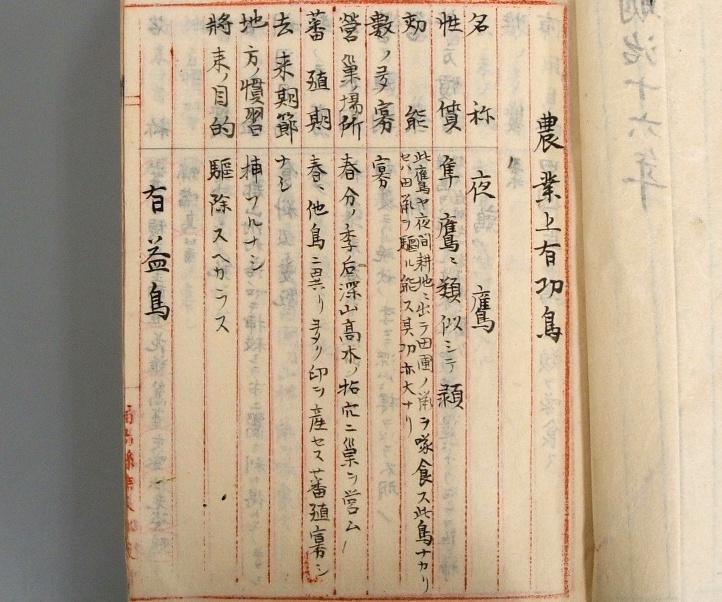 農業上有功鳥
名称 夜鷹
性質 隼鷹ニ類似シテ
効能 此鷹ヤ夜間耕地ニ出テ田圃ノ ヲ啄食ス此鳥ナカリ
セハ田 ヲ駆ル能ス其功亦大ナリ
数ノ多寡 寡
営巣ノ場所 春分ノ季后深山高木ノ枯穴ニ巣ヲ営ム
蕃殖期 春、他鳥ニ異リ多ク卵ヲ産セス蕃殖寡シ
去来期節 ナシ
地方ノ慣習 捕フルナシ
将来ノ目的 駆除スヘカラス
有益鳥
明治十六年